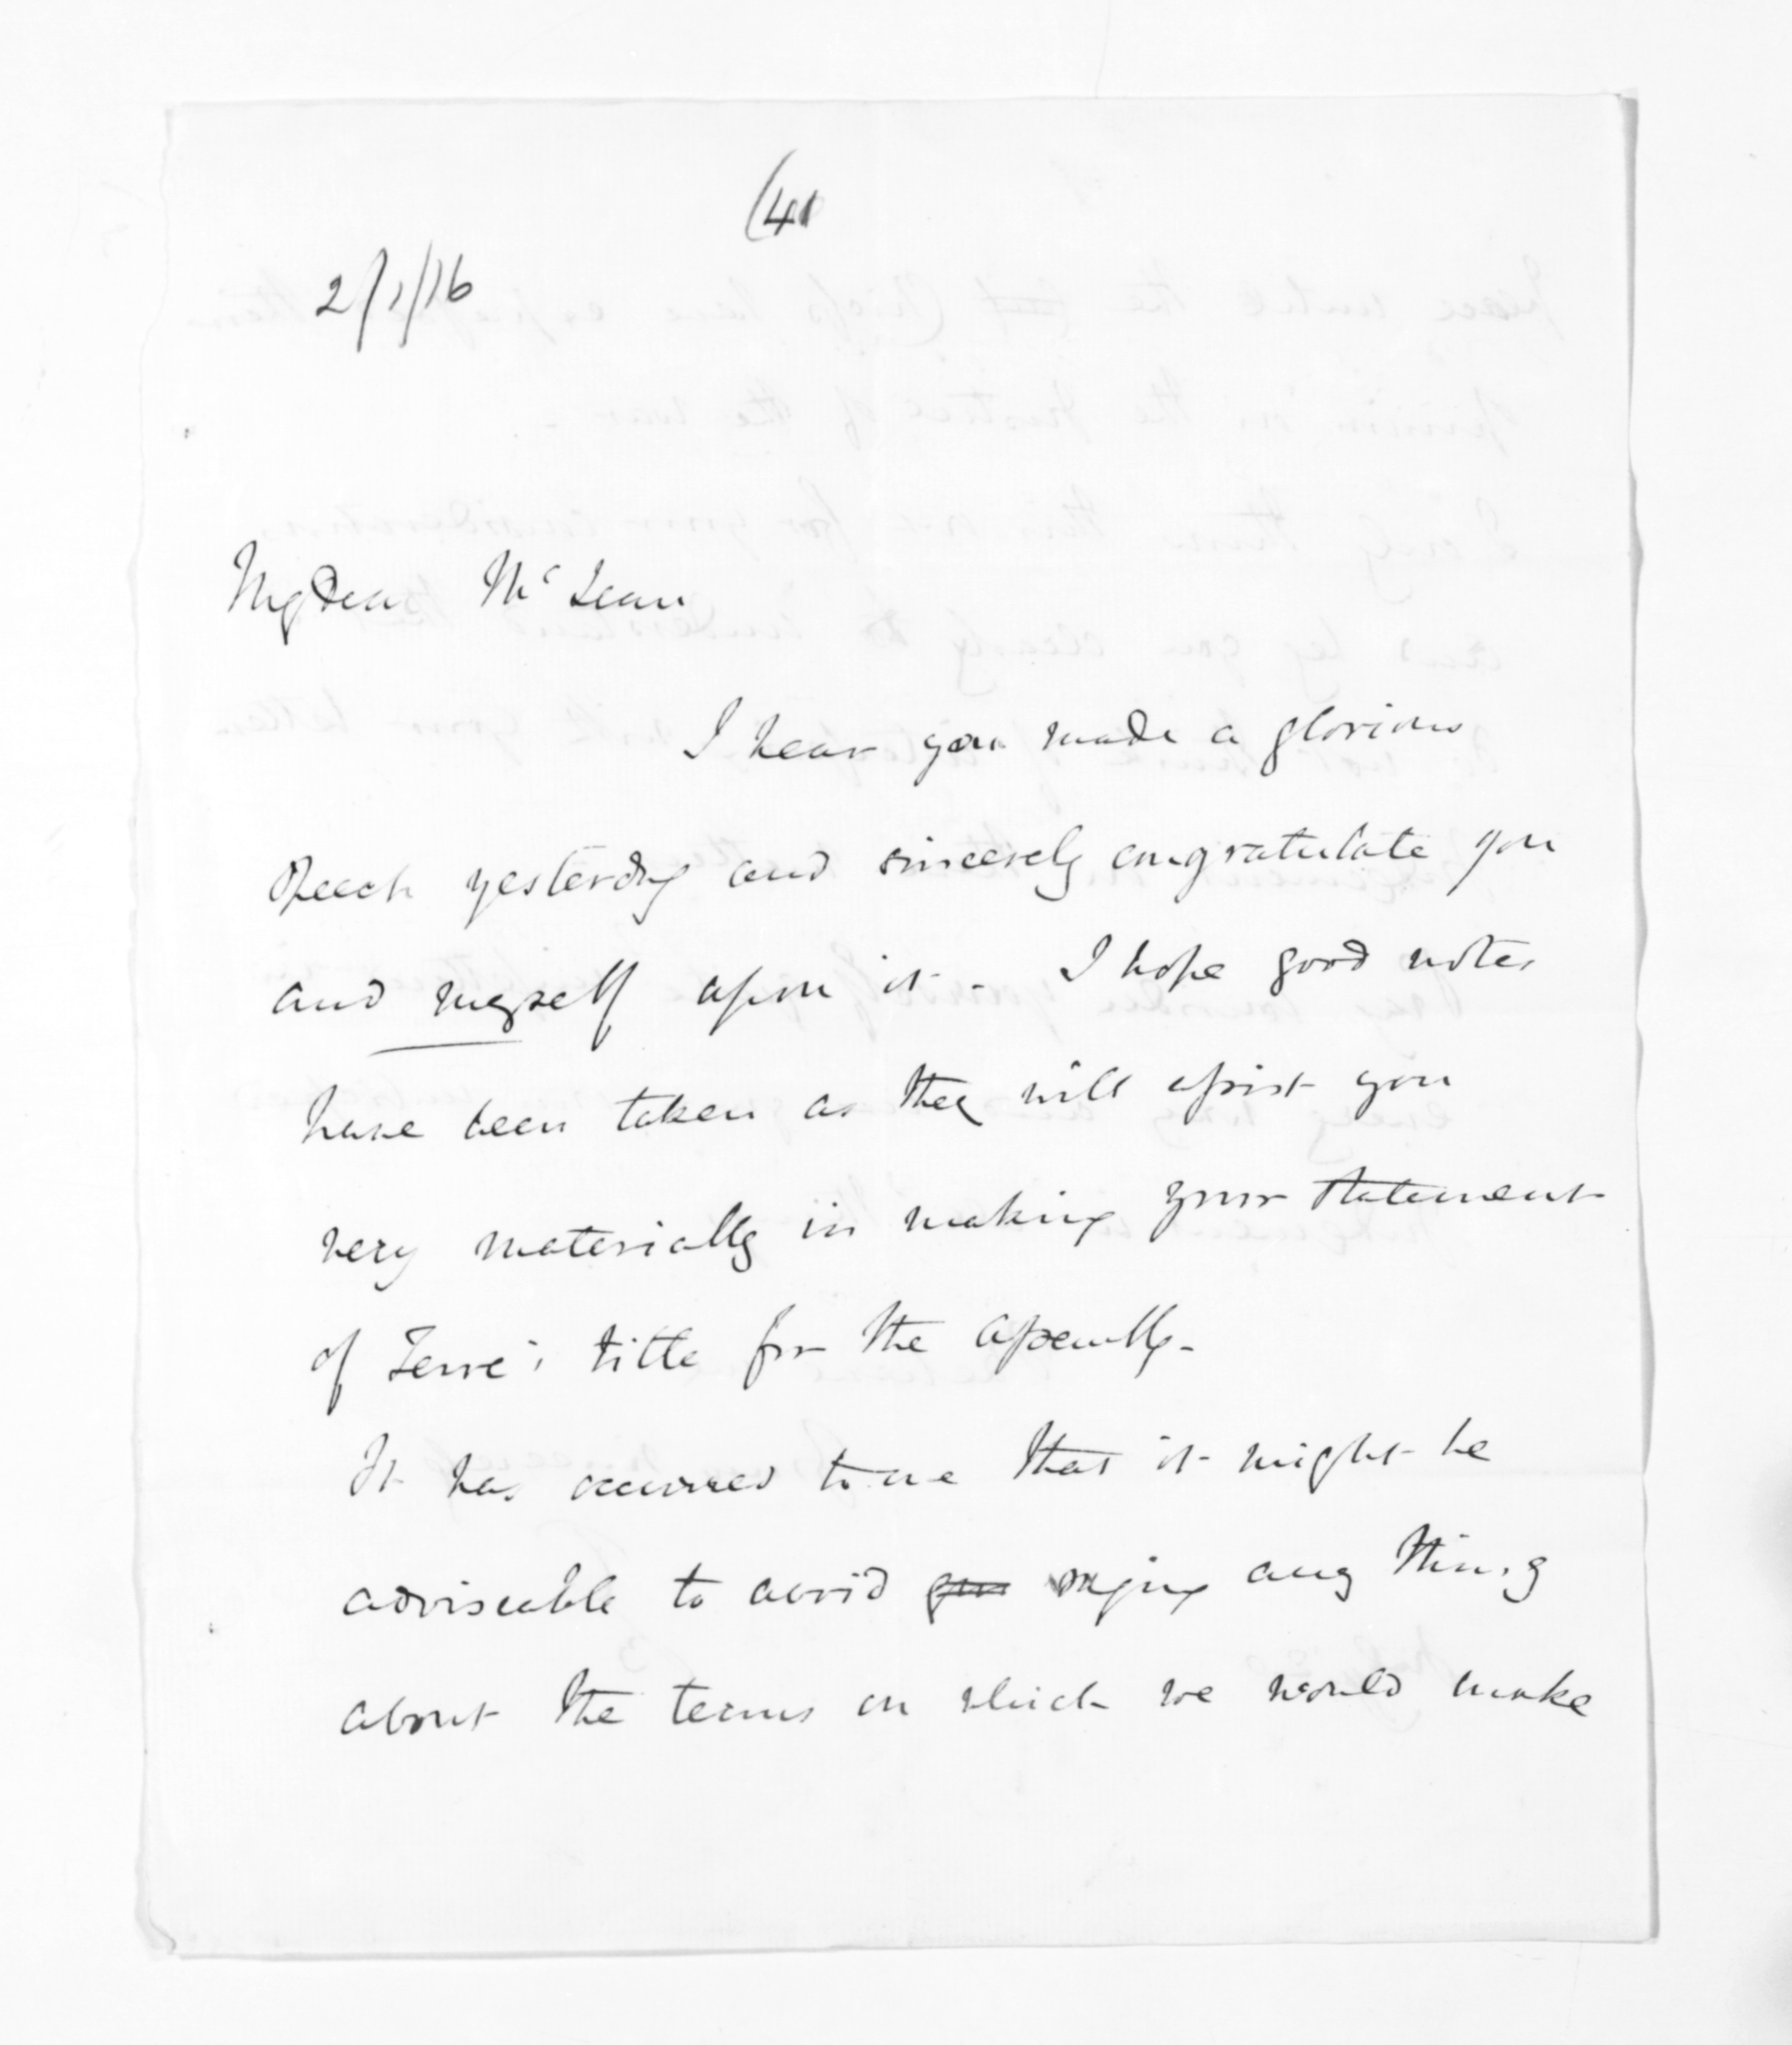 (41
2/1/16
My dear McLean
I hear you made a glorious
speech yesterday and sincerely congratulate you
and myself upon it. I hope good notes
have been taken as they will assist you
very materially in making your statement
of Teira's title for the Assembly.
It has occurred to me that it might be
adviseable to avoid saying any thing
about the terms on which we would make